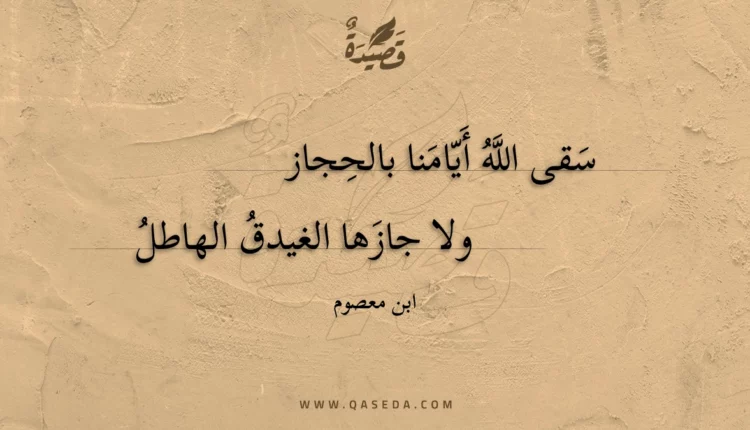 قَصِيدَةٌ
سَقى اللَّهُ أَيّامَنا بالحِجاز
ولا جازَها الغيدقُ الهاطلُ
ابن معصوم
WWW.QASEDA.COM